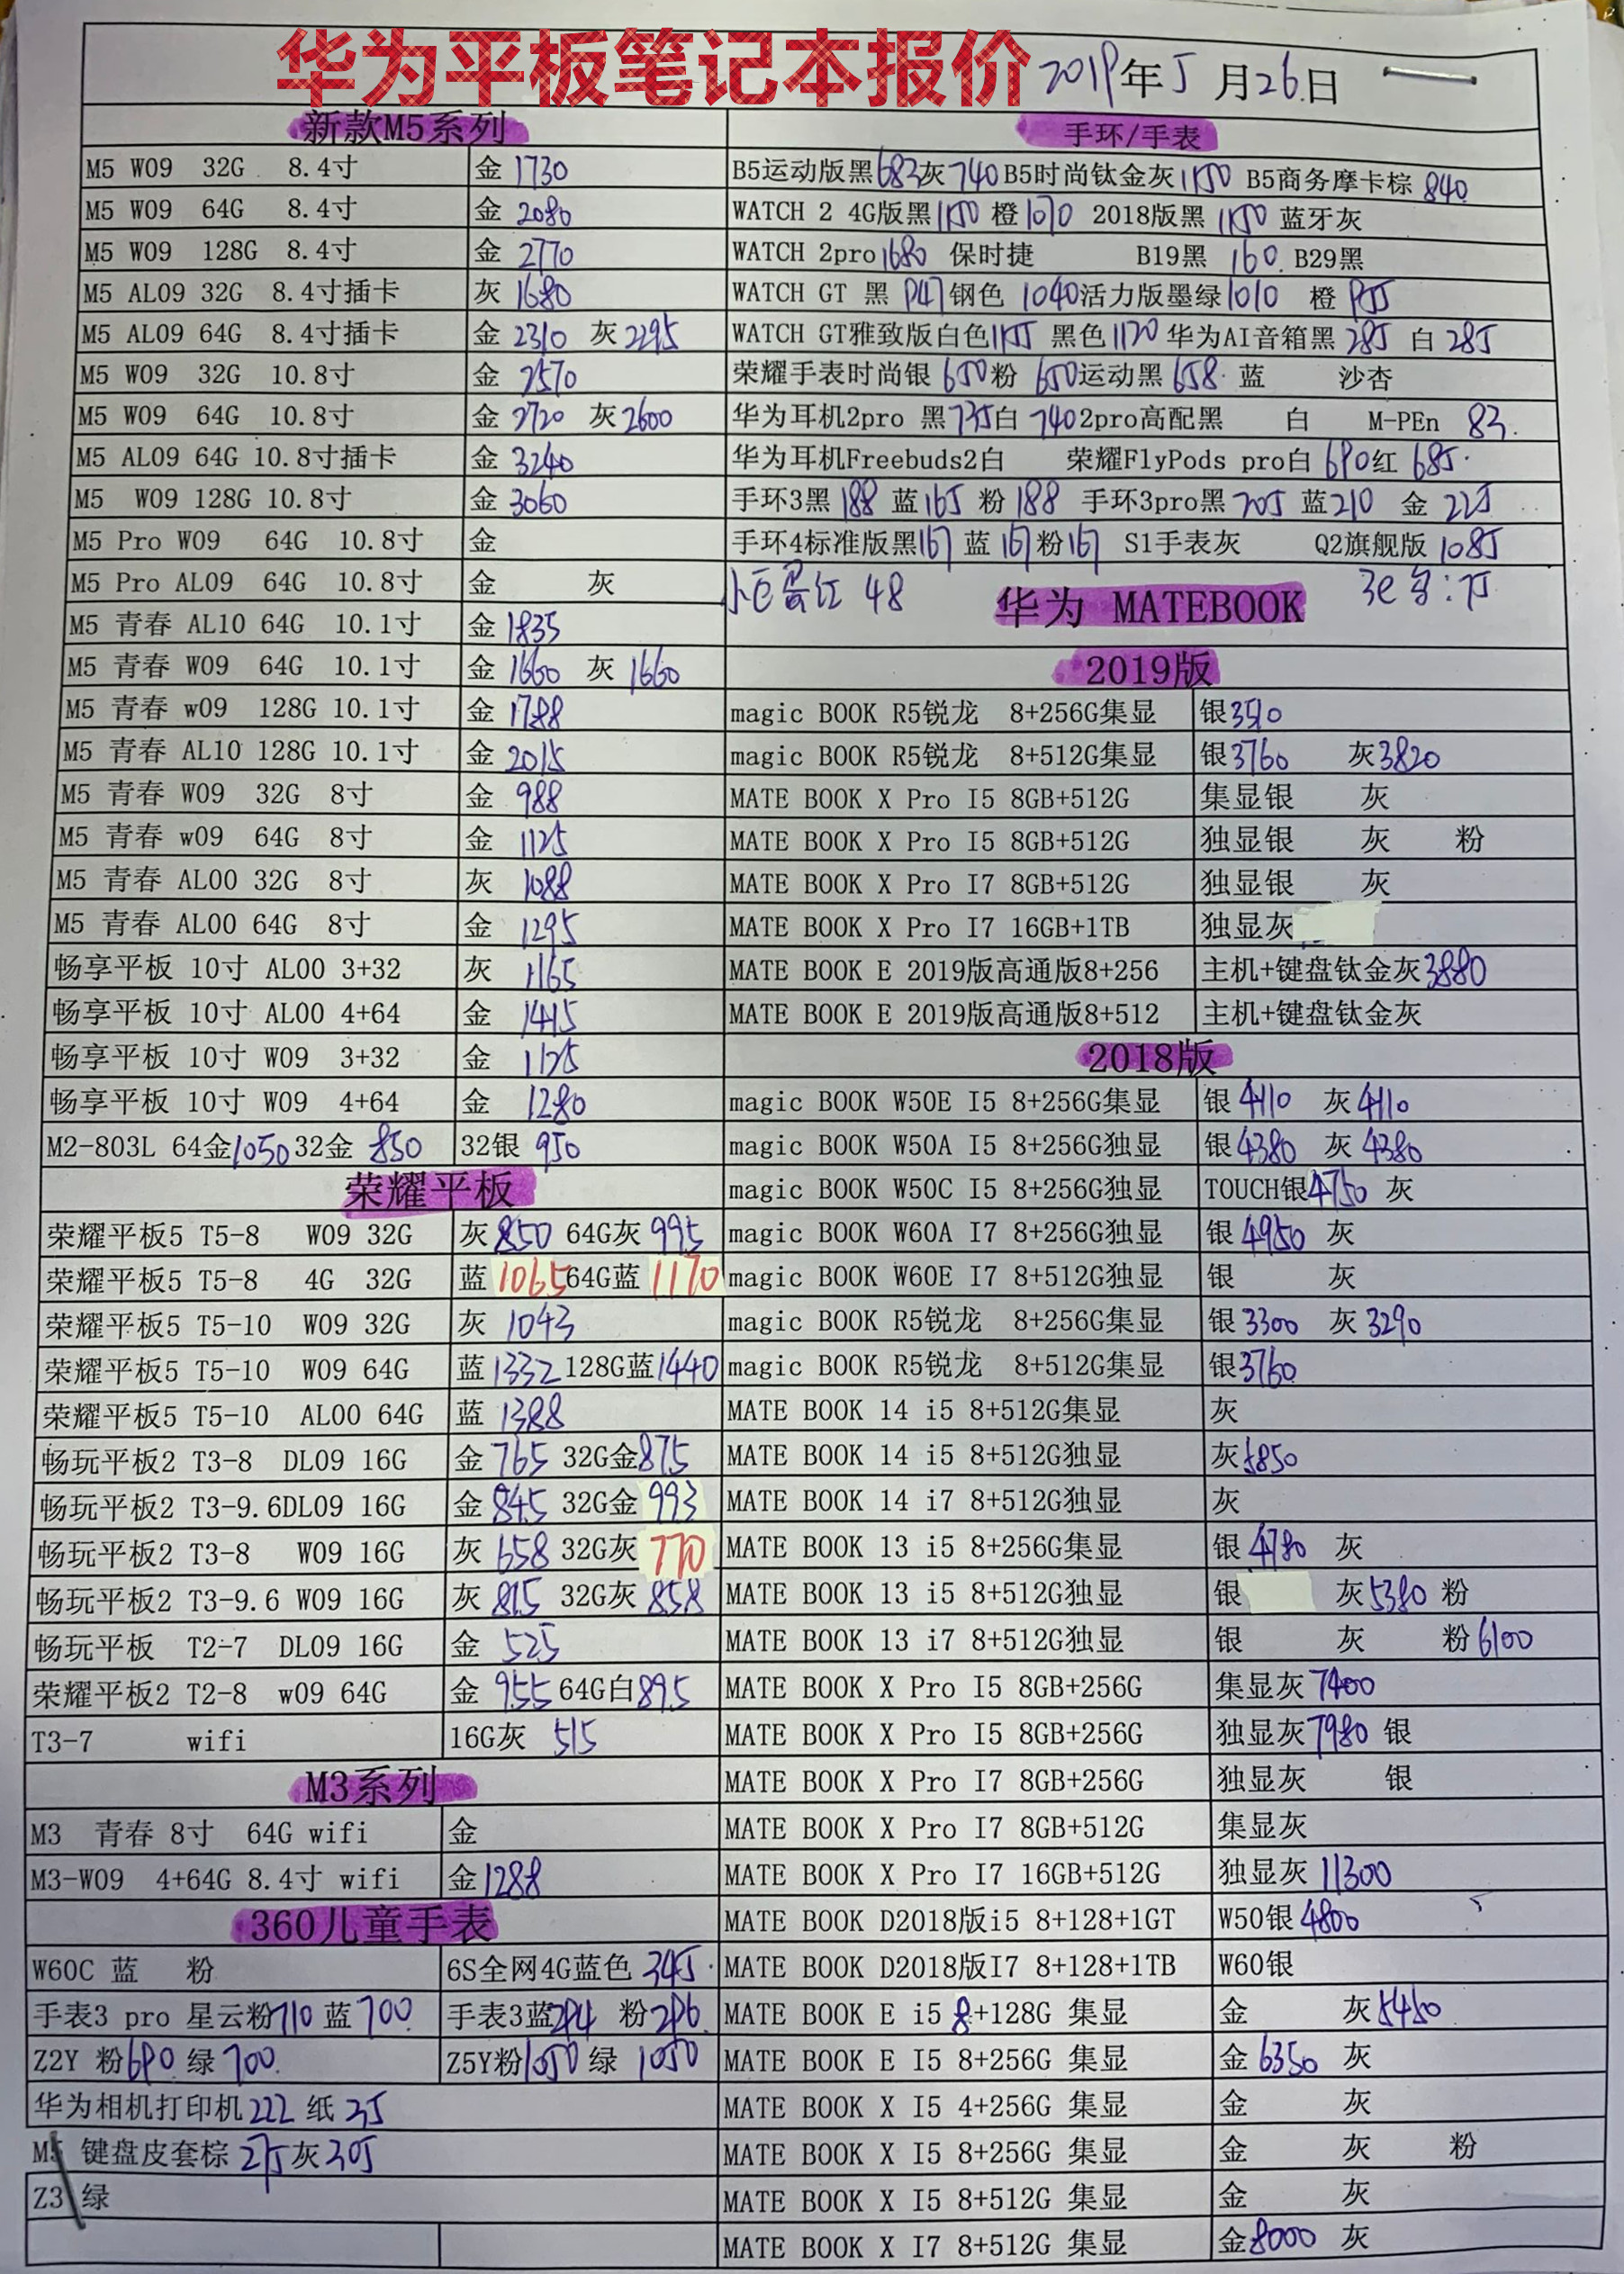 华为平板笔记本报价 2019年5月26日
新款M5系列
M5 W09 32G 8.4寸 金 1730
M5 W09 64G 8.4寸 金 2080
M5 W09 128G 8.4寸 金 2770
M5 AL09 32G 8.4寸插卡 灰 1680
M5 AL09 64G 8.4寸插卡 金 2310 灰 2295
M5 W09 32G 10.8寸 金 2570
M5 W09 64G 10.8寸 金 2720 灰 2600
M5 AL09 64G 10.8寸插卡 金 3240
M5 W09 128G 10.8寸 金 3060
M5 Pro W09 64G 10.8寸 金
M5 Pro AL09 64G 10.8寸 金 灰
M5 青春 AL10 64G 10.1寸 金 1835
M5 青春 W09 64G 10.1寸 金 1660 灰 1660
M5 青春 w09 128G 10.1寸 金 1788
M5 青春 AL10 128G 10.1寸 金 2015
M5 青春 W09 32G 8寸 金 988
M5 青春 w09 64G 8寸 金 1125
M5 青春 AL00 32G 8寸 灰 1088
M5 青春 AL00 64G 8寸 金 1295
畅享平板 10寸 AL00 3+32 灰 1165
畅享平板 10寸 AL00 4+64 金 1415
畅享平板 10寸 W09 3+32 金 1125
畅享平板 10寸 W09 4+64 金 1280
M2-803L 64金1050 32金 850 32银 950
荣耀平板
荣耀平板5 T5-8 W09 32G 灰 850 64G灰 995
荣耀平板5 T5-8 4G 32G 蓝 1065 64G蓝 1170
荣耀平板5 T5-10 W09 32G 灰 1043
荣耀平板5 T5-10 W09 64G 蓝 1332 128G蓝1440
荣耀平板5 T5-10 AL00 64G 蓝 1388
畅玩平板2 T3-8 DL09 16G 金 765 32G金875
畅玩平板2 T3-9.6DL09 16G 金 845 32G金 993
畅玩平板2 T3-8 W09 16G 灰 658 32G灰 770
畅玩平板2 T3-9.6 W09 16G 灰 815 32G灰 858
畅玩平板 T2-7 DL09 16G 金 525
荣耀平板2 T2-8 w09 64G 金 955 64G白895
T3-7 wifi 16G灰 515
M3系列
M3 青春 8寸 64G wifi 金
M3-W09 4+64G 8.4寸 wifi 金1288
360儿童手表
W60C 蓝 粉 6S全网4G蓝色 345
手表3 pro 星云粉710 蓝 700 手表3蓝294 粉296
Z2Y 粉690 绿 700 Z5Y粉1050 绿 1050
华为相机打印机222 纸 35
M5 键盘皮套棕 275 灰305
Z3 绿
手环/手表
B5运动版黑683灰 740 B5时尚钛金灰1150 B5商务摩卡棕 840
WATCH 2 4G版黑1150 橙1070 2018版黑 1150 蓝牙灰
WATCH 2pro1680 保时捷 B19黑 160 B29黑
WATCH GT 黑 947钢色 1040活力版墨绿1010 橙 955
WATCH GT雅致版白色1155 黑色1170 华为AI音箱黑 285 白 285
荣耀手表时尚银 650粉 650运动黑 658 蓝 沙杏
华为耳机2pro 黑735白 740 2pro高配黑 白 M-PEn 83
华为耳机Freebuds2白 荣耀FlyPods pro白 690红 685
手环3黑 188 蓝165 粉 188 手环3pro黑 205 蓝210 金 225
手环4标准版黑167 蓝 167粉167 S1手表灰 Q2旗舰版 1085
小巨蛋红 48
华为 MATEBOOK
2019版
magic BOOK R5锐龙 8+256G集显 银3510
magic BOOK R5锐龙 8+512G集显 银3760 灰3820
MATE BOOK X Pro I5 8GB+512G 集显银 灰
MATE BOOK X Pro I5 8GB+512G 独显银 灰 粉
MATE BOOK X Pro I7 8GB+512G 独显银 灰
MATE BOOK X Pro I7 16GB+1TB 独显灰
MATE BOOK E 2019版高通版8+256 主机+键盘钛金灰3880
MATE BOOK E 2019版高通版8+512 主机+键盘钛金灰
2018版
magic BOOK W50E I5 8+256G集显 银 4110 灰4110
magic BOOK W50A I5 8+256G独显 银4380 灰 4380
magic BOOK W50C I5 8+256G独显 TOUCH银4750 灰
magic BOOK W60A I7 8+256G独显 银 4950 灰
magic BOOK W60E I7 8+512G独显 银 灰
magic BOOK R5锐龙 8+256G集显 银 3300 灰 3290
magic BOOK R5锐龙 8+512G集显 银3760
MATE BOOK 14 i5 8+512G集显 灰
MATE BOOK 14 i5 8+512G独显 灰5850
MATE BOOK 14 i7 8+512G独显 灰
MATE BOOK 13 i5 8+256G集显 银 4780 灰
MATE BOOK 13 i5 8+512G独显 银 灰5380 粉
MATE BOOK 13 i7 8+512G独显 银 灰 粉6100
MATE BOOK X Pro I5 8GB+256G 集显灰 7400
MATE BOOK X Pro I5 8GB+256G 独显灰7980 银
MATE BOOK X Pro I7 8GB+256G 独显灰 银
MATE BOOK X Pro I7 8GB+512G 集显灰
MATE BOOK X Pro I7 16GB+512G 独显灰 11300
MATE BOOK D2018版i5 8+128+1GT W50银 4800
MATE BOOK D2018版I7 8+128+1TB W60银
MATE BOOK E i5 8+128G 集显 金 灰5450
MATE BOOK E I5 8+256G 集显 金 6350 灰
MATE BOOK X I5 4+256G 集显 金 灰
MATE BOOK X I5 8+256G 集显 金 灰 粉
MATE BOOK X I5 8+512G 集显 金 灰
MATE BOOK X I7 8+512G 集显 金8000 灰